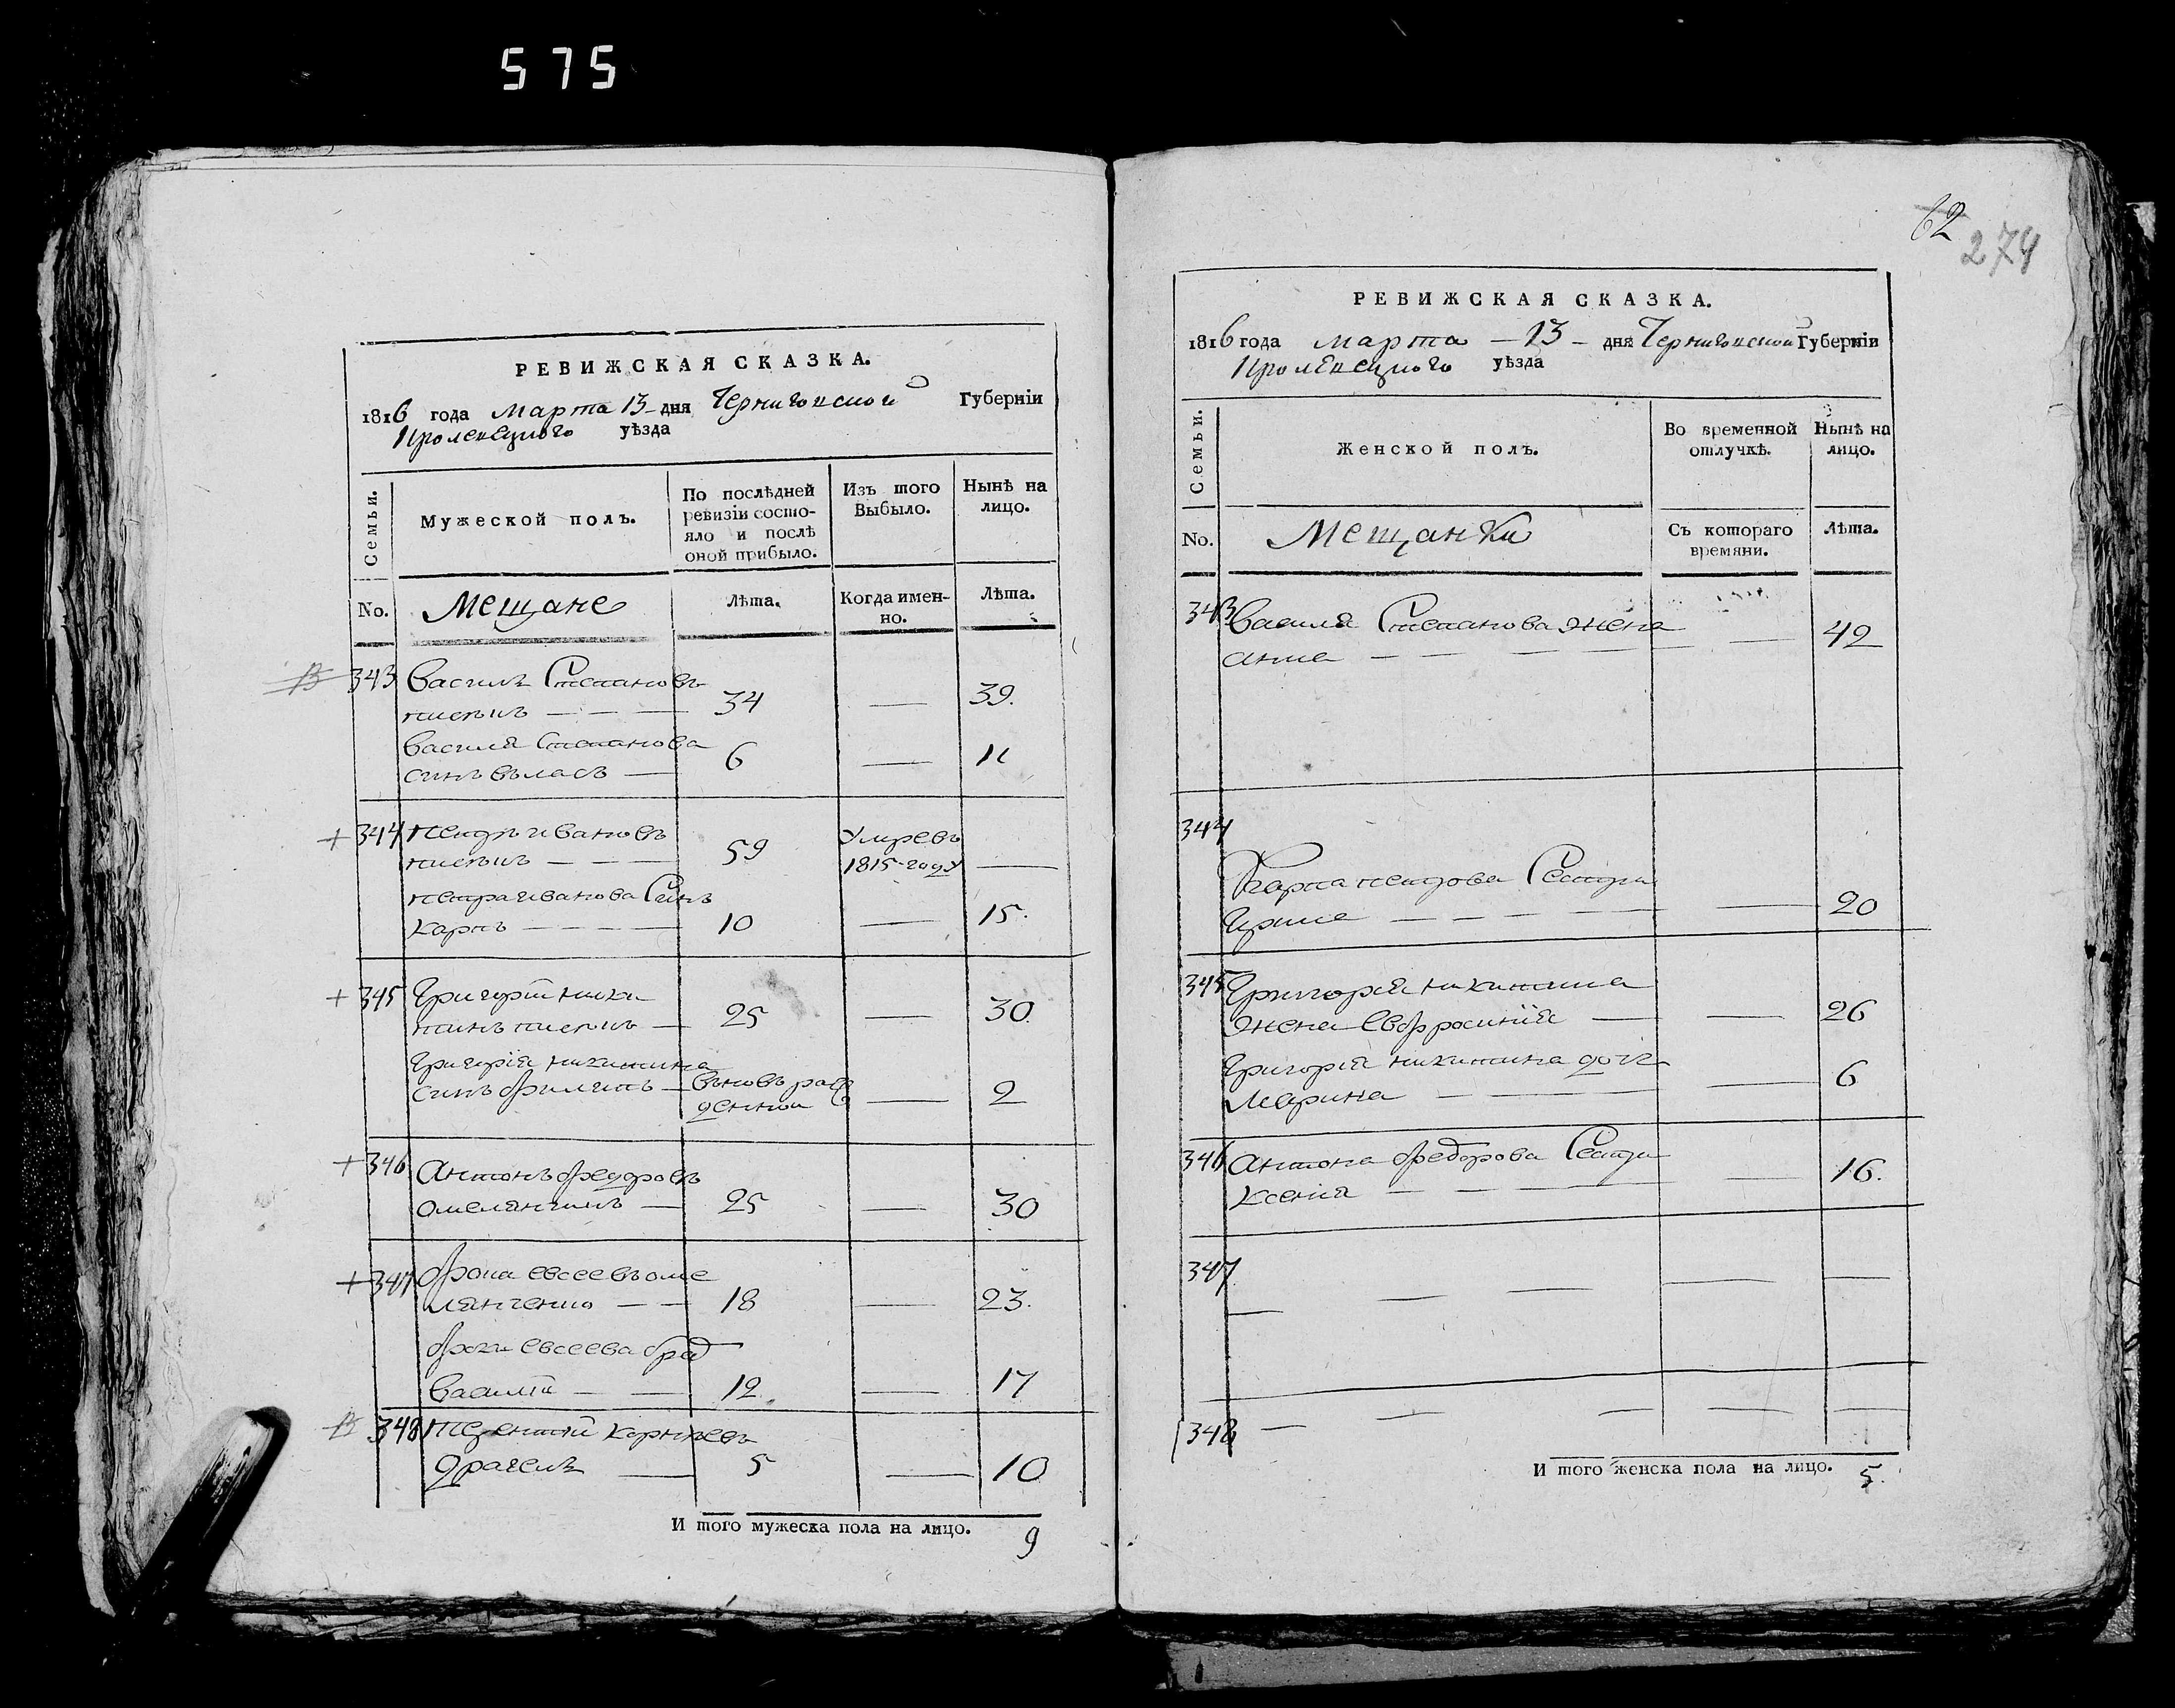 575
РЕВИЖСКАЯ СКАЗКА.
1816 года Марта 13 дня Черниговской Губерніи
Кролевецкого уѣзда
Семьи.
Мужеской полъ.
По послѣдней ревизіи состо-
яло и послѣ
оной прибыло.
Изъ того
Выбыло.
Нынѣ на
лицо.
No.
Мещане
Лѣта.
Когда имен-
но.
Лѣта.
343 Василь Степановъ
34 39.
Василя Степанова
синъ Власъ 6 11
344 Петръ Ивановъ
59 Умре въ
1815 году
Петра Иванова Синъ
Карпъ 10 15.
345 Григорій Ники-
тинъ 25 30.
Григорія Никитина
синъ Филипъ вновь рож
денной 2
346 Антонъ Федоровъ
25 30
347 Фома Евсеевъ Оме
лянченко 18 23.
Фоми Евсеева брат
Василій 12. 17
348 Терентій Карнѣевъ
Драгель 5 10
И того мужеска пола на лицо. 9
62
274
РЕВИЖСКАЯ СКАЗКА.
1816 года Марта 13 дня Черниговской Губерніи
Кролевецкого уѣзда
Семьи.
Женской полъ.
Во временной
отлучкѣ.
Нынѣ на
лицо.
No.
Мещанки
Съ котораго
времяни.
Лѣта.
343 Василя Степанова жена
Анна 42
344
Карпа Петрова Сестра
Ирина 20
345 Григорія Никитина
жена Евфросинія 26
Григорія Никитина дочь
Марина 6
346 Антона Федорова Сестра
Ксенія 16.
347
348
И того женска пола на лицо. 5.